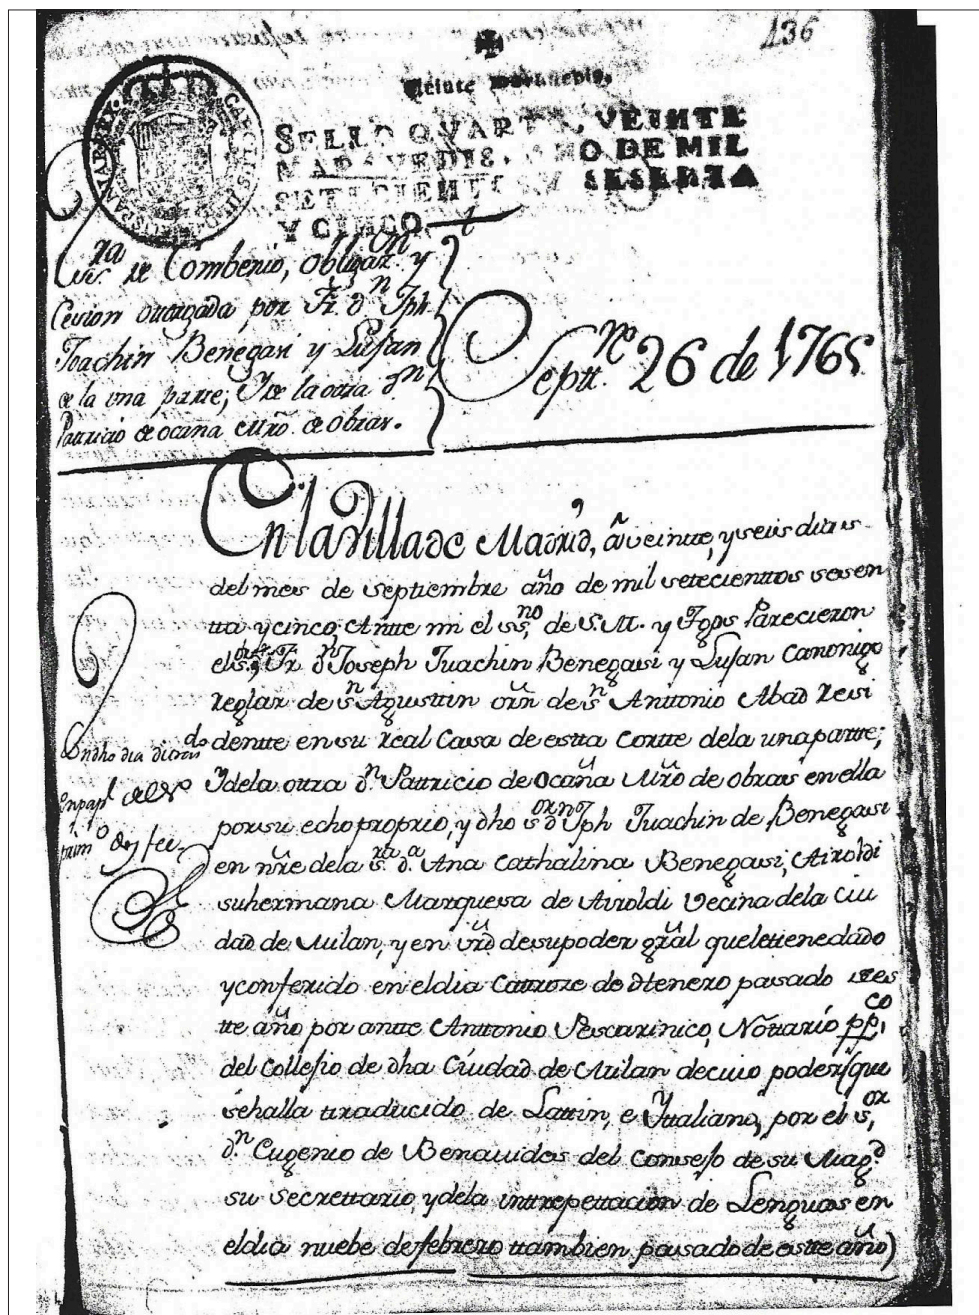 136
Veinte maravedis.
SELLO QVARTO, VEINTE
MARAVEDIS, AÑO DE MIL
SETECIENTOS Y SESENTA
Y CINCO.
CAROLUS III D G HISPANIAR REX
Essc.ra de Combenio, obligaz.on y
Cesion otorgada por Fr. d.n Jph
Joachin Benegasi y Lujan
de la una parte; Y de la otra d.n
Patricio de ocaña Mro. de obras.
Septt.re 26 de 1765
En la Villa de Madrid, â veinte, y seis dias
del mes de septiembre año de mil setecienttos sesen
tta y cinco, Antte mi el ss.no de S.M. y Tgos Parecieron
el s.or Fr. d.n Joseph Juachin Benegassi y Lujan Canonigo
reglar de s.n Agusttin orn de s.n Anttonio Abad resi
dentte en su real Cassa de estta Cortte dela una partte;
Y dela ottra d.n Pattricio de Ocaña Mro de obras en ella
por su echo proprio, y dho s.or d.n Jph Juachin de Benegasi
en nre dela s.ra d.a Ana Cathalina Benegasi, Airoldi
su hermana Marquesa de Airoldi Vecina dela Ciu
dad de Milan, y en vrd de su poder gral que le tiene dado
y conferido en el dia Cattorze de Henero pasado de es
tte año por antte Anttonio Pescarinico, Nottario pp.co
del Collejio de dha Ciudad de Milan de cuio poder (que
se halla traducido de Lattin, e Yttaliano, por el s.or
d.n Eugenio de Benauides del Consejo de su Mag.d
su Secrettario, y dela intterpettacion de Lenguas en
el dia nuebe de febrero ttambien pasado de estte año)
En dho dia di tras.do
En pap.l del
doy fee